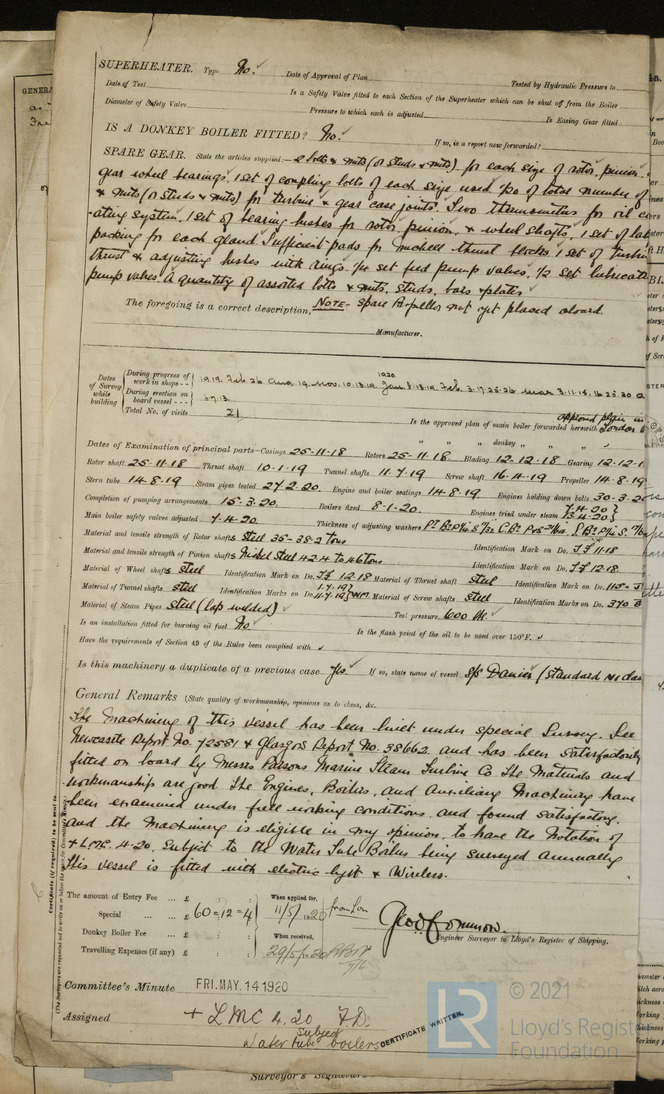 SUPERHEATER. Type No. Date of Approval of Plan Tested by Hydraulic Pressure to
Date of Test Is a Safety Valve fitted to each Section of the Superheater which can be shut off from the Boiler
Diameter of Safety Valve Pressure to which each is adjusted Is Easing Gear fitted
IS A DONKEY BOILER FITTED? No. If so, is a report now forwarded?
SPARE GEAR. State the articles supplied:— 2 bolts & nuts (or studs & nuts) for each size of rotor, pinion &
gear wheel bearings. 1 set of coupling bolts of each size used 1/20 of total number of
& nuts (or studs & nuts) for turbine & gear case joints. Two thermometers for oil
-ating system. 1 set of bearing bushes for rotor, pinion, & wheel shafts. 1 set of
packing for each gland Sufficient pads for michell thrust blocks 1 set of
thrust & adjusting bushes with rings. 1/4 set feed pump valves. 1/2 set
pump valves. A quantity of assorted bolts & nuts, studs, bars & plates
The foregoing is a correct description, NOTE- spare Propeller not yet placed aboard.
Manufacturer.
Dates of Survey while building
During progress of work in shops - - 1919. Feb. 26 Aug. 14. Nov. 10.13.19 1920. Jan. 8.13.19. Feb. 3.17.25.26 Mar 3.11.15.16.25.30
During erection on board vessel - - -
Total No. of visits 21
Is the approved plan of main boiler forwarded herewith London
" " " donkey " " "
Dates of Examination of principal parts—Casings 25-11-18 Rotors 25-11-18 Blading 12-12-18 Gearing 12-12-1
Rotor shaft 25-11-18 Thrust shaft 10-1-19 Tunnel shafts 11-7-19 Screw shaft 16-4-19 Propeller 14-8-19
Stern tube 14-8-19 Steam pipes tested 27.2.20. Engine and boiler seatings 14-8-19 Engines holding down bolts 30-3-20
Completion of pumping arrangements 15-3-20. Boilers fixed 8-1-20. Engines tried under steam 7.4.20 13.4.20
Main boiler safety valves adjusted 7-4-20. Thickness of adjusting washers
Material and tensile strength of Rotor shafts Steel 35-38.2 tons Identification Mark on Do. JJ 11.18
Material and tensile strength of Pinion shafts Nickel Steel 42.4 to 46 tons Identification Mark on Do. JJ 12.18
Material of Wheel shafts Steel Identification Mark on Do. JJ 12.18 Material of Thrust shaft Steel Identification Mark on Do. 115-J
Material of Tunnel shafts Steel Identification Marks on Do. Material of Screw shafts Steel Identification Marks on Do. 370
Material of Steam Pipes Steel (Lap welded) Test pressure 600 lbs
Is an installation fitted for burning oil fuel No Is the flash point of the oil to be used over 150°F.
Have the requirements of Section 49 of the Rules been complied with
Is this machinery a duplicate of a previous case Yes If so, state name of vessel S/S Danier (Standard
General Remarks (State quality of workmanship, opinions as to class, &c.
The Machinery of this vessel has been built under special Survey. See
Newcastle Report No. 72581 & Glasgow Report No. 38662. and has been satisfactorily
fitted on board by Messrs Parsons Marine Steam Turbine Co. The Materials and
workmanship are good. The Engines, Boilers, and Auxiliary Machinery have
been examined under full working conditions, and found satisfactory.
and the Machinery is eligible in my opinion, to have the Notation of
+ LMC. 4-20. Subject to the Water Tube Boilers being surveyed annually
This vessel is fitted with electric light & Wireless.
Certificate (if required) to be sent to
The amount of Entry Fee ... £ : : When applied for,
Special ... ... £ 60=12=4 11/5/1920 from Lon
Donkey Boiler Fee ... £ : : When received,
Travelling Expenses (if any) £ : : 29/5/20
Engineer Surveyor to Lloyd's Register of Shipping.
Committee's Minute FRI. MAY. 14 1920
Assigned + LMC 4.20 F.D.
subject
Water tube boilers
CERTIFICATE WRITTEN.
Surveyor's Signature
LR
© 2021
Lloyd's Register
Foundation